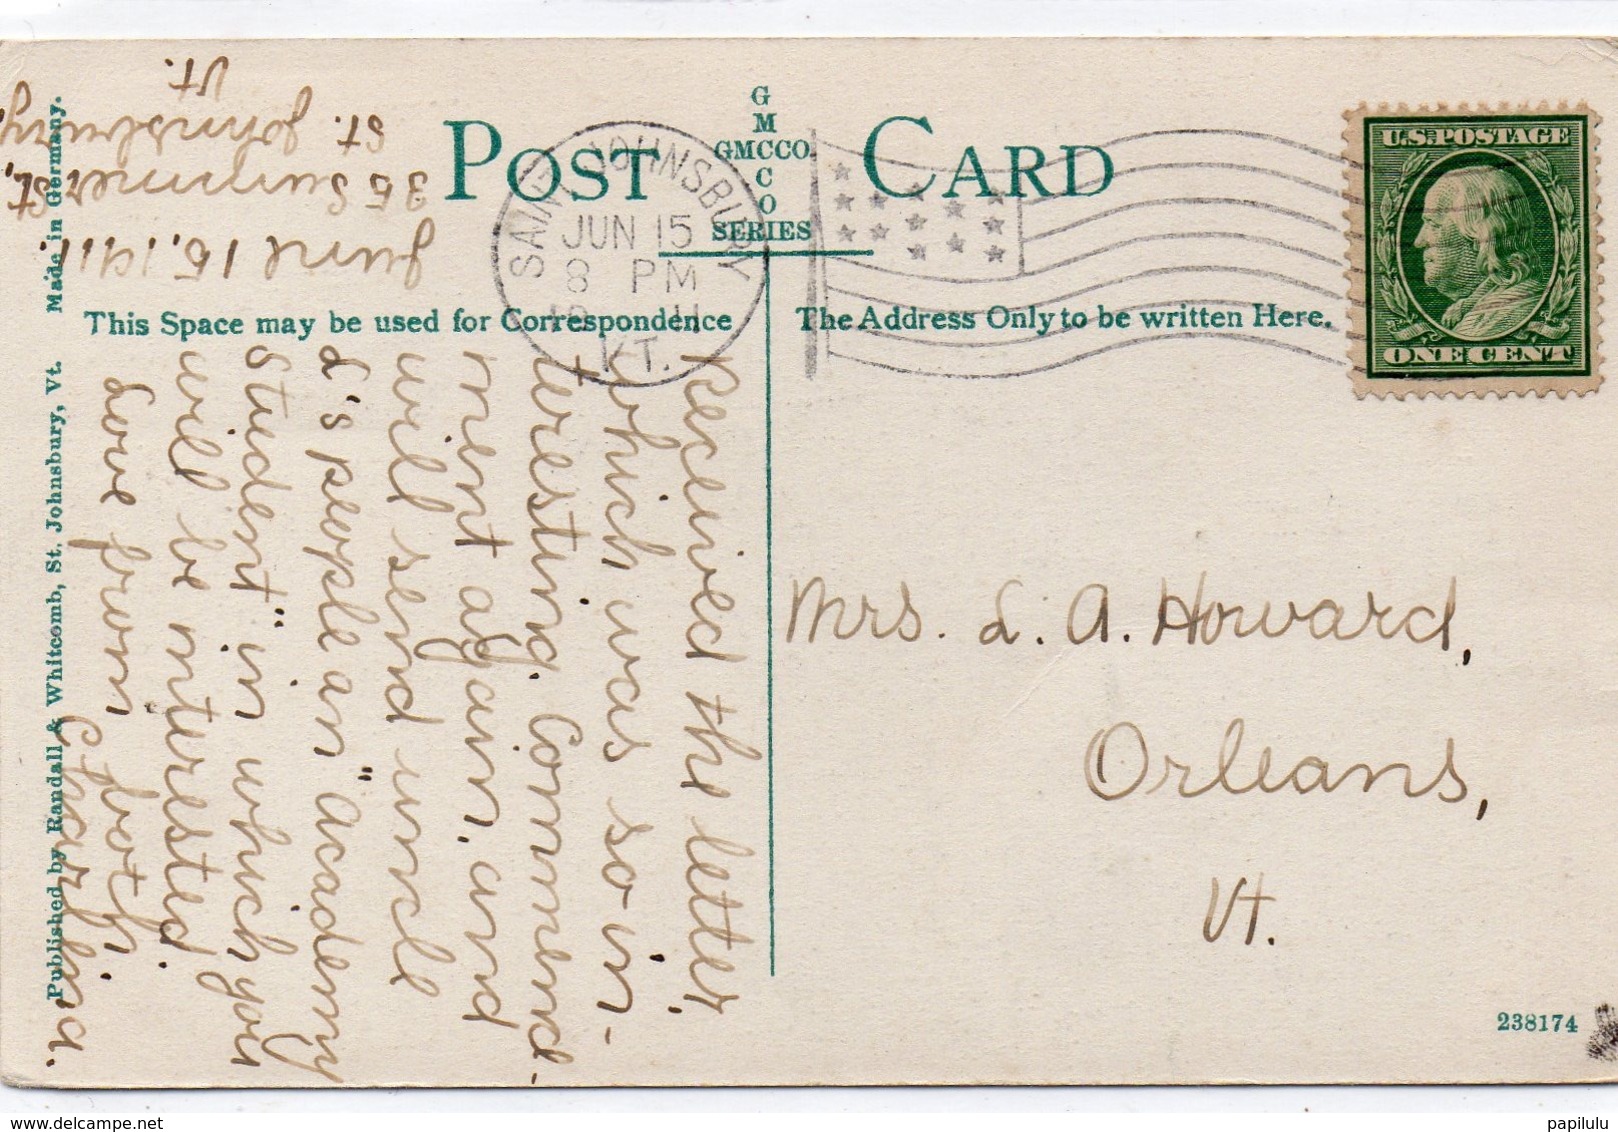 POST CARD
G
M
GMCCO.
C
O
SERIES
SAINT JOHNSBURY
JUN 15
8 PM
VT.
U.S. POSTAGE
ONE CENT
This Space may be used for Correspondence
The Address Only to be written Here.
June 15, 1911.
35 Summer St.,
St. Johnsbury,
Vt.
Received the letter,
which was so in-
teresting. Commence-
ment again, and
will send uncle
L's people an "Academy
Student" in which you
will be interested.
Love from both.
Charlina.
Mrs. L. A. Howard,
Orleans,
Vt.
Published by Randall & Whitcomb, St. Johnsbury, Vt. Made in Germany.
238174
www.delcampe.net
papilulu